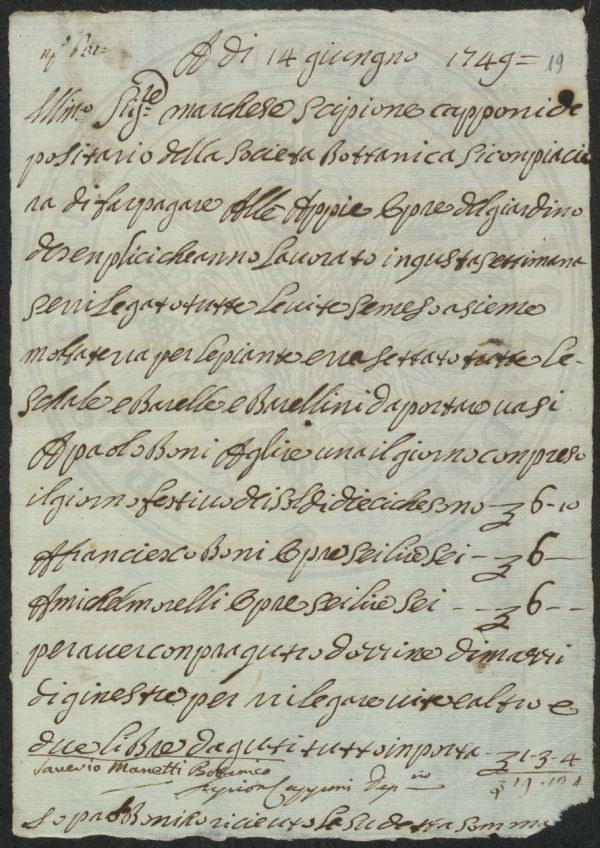 A di 14 giungno 1749= 19
Illmo Sigre marchese Scipione capponi de
positario della Societa Bottanica Siconpiacie
ra di far pagare Alle Appie Opre del giardino
de senplici che anno Lavorato in questa settimana
e rilegato tutte le vite e meso asieme
molta tera per le piante e ra setato tutte le
schale e Barelle e Barellini da portare vasi
A paolo Boni A lire una il giorno conpreso
il giorno festivo di soldi dieci che sono 6-10
A franciesco Boni Opre sei lire sei - 6 -
A michel morelli Opre sei lire sei - - 6 - -
per aver conpra quatro dozzine di mazzi
di ginestre per rilegare vite e altro e
due libre daguti tutto inporta 1-3-4
Saverio Manetti Bottanico 19-13-4
Scipion Capponi Depno
Io paolo Boni o riceuto la sudetta somma